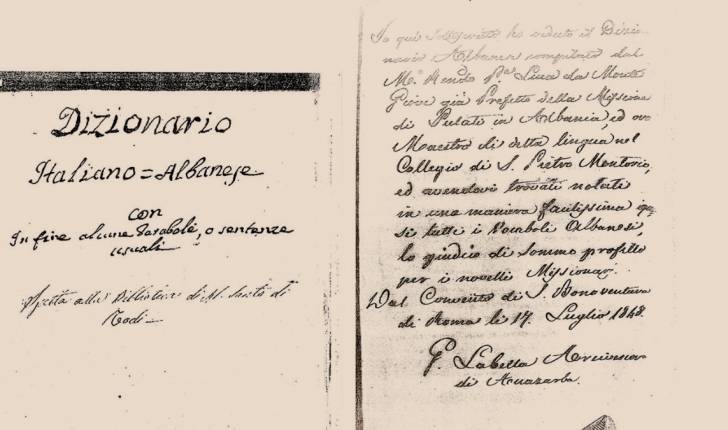 Dizionario
Italiano = Albanese
con
In fine alcune Parabole, o sentenze
usuali
alla di
Todi
Io qui sottoscritto ho veduto il Dizio-
nario Albanese compilato dal
M.º Rendo P.re Luca da Monte
Giove già Prefetto della Missione
di Pulati in Albania, ed ora
Maestro di detta lingua nel
Collegio di S. Pietro Montorio,
ed avendovi trovati notati
in una maniera facilissima qua
si tutti i Vocaboli Albanesi,
lo giudico di sommo profitto
per i novelli Missionar.
Dal Convento di S. Bonaventura
di Roma li 17. Luglio 1848.
G. Labella Arcivescovo
di